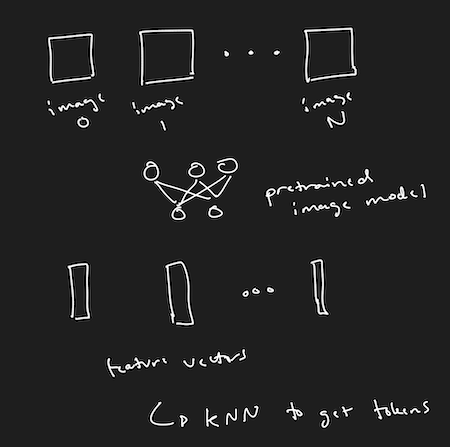 image 0
image 1
image N
pretrained
image model
feature vectors
KNN to get tokens